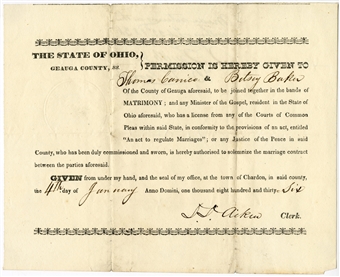 THE STATE OF OHIO,
GEAUGA COUNTY, ss.
PERMISSION IS HEREBY GIVEN TO
Thomas & Betsey Baker
Of the County of Geauga aforesaid, to be joined together in the bands of
MATRIMONY; and any Minister of the Gospel, resident in the State of
Ohio aforesaid, who has a license from any of the Courts of Common
Pleas within said State, in conformity to the provisions of an act, entitled
"An act to regulate Marriages"; or any Justice of the Peace in said
County, who has been duly commissioned and sworn, is hereby authorised to solemnize the marriage contract
between the parties aforesaid.
GIVEN from under my hand, and the seal of my office, at the town of Chardon, in said county,
the 4th day of January Anno Domini, one thousand eight hundred and thirty-Six
D. D. Aiken Clerk.